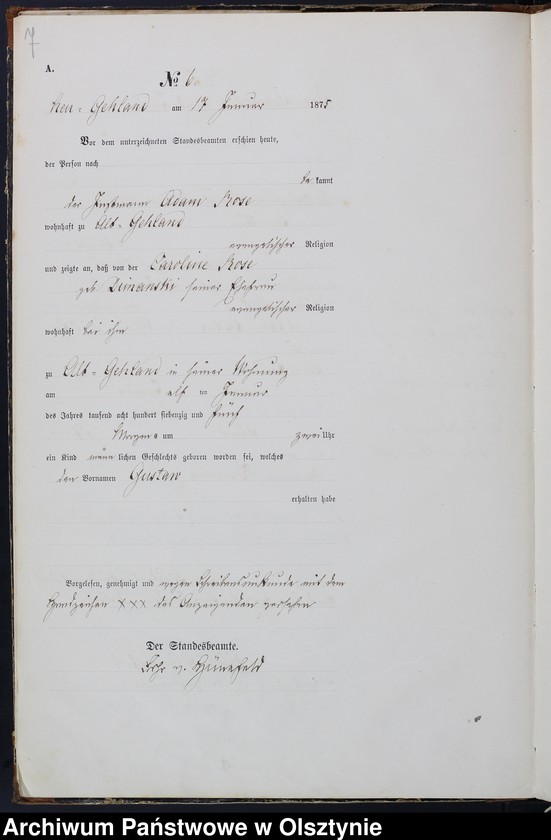 7
A.
№ 6
Neu-Gehland am 17 Januar 1875
Vor dem unterzeichneten Standesbeamten erschien heute,
der Person nach
bekannt
der Instmann Adam Rose
wohnhaft zu Alt-Gehland
evangelischer Religion
und zeigte an, daß von der Caroline Rose
geb. Dimanski seiner Ehefrau
evangelischer Religion
wohnhaft bei ihm
zu Alt-Gehland in seiner Wohnung
am elf ten Januar
des Jahres tausend acht hundert siebenzig und fünf
Morgens um zwei Uhr
ein Kind männlichen Geschlechts geboren worden sei, welches
den Vornamen Gustav
erhalten habe
Vorgelesen, genehmigt und wegen Schreibensunkunde mit dem
Handzeichen XXX des Anzeigenden versehen
Der Standesbeamte.
v. Hünefeld
Archiwum Państwowe w Olsztynie